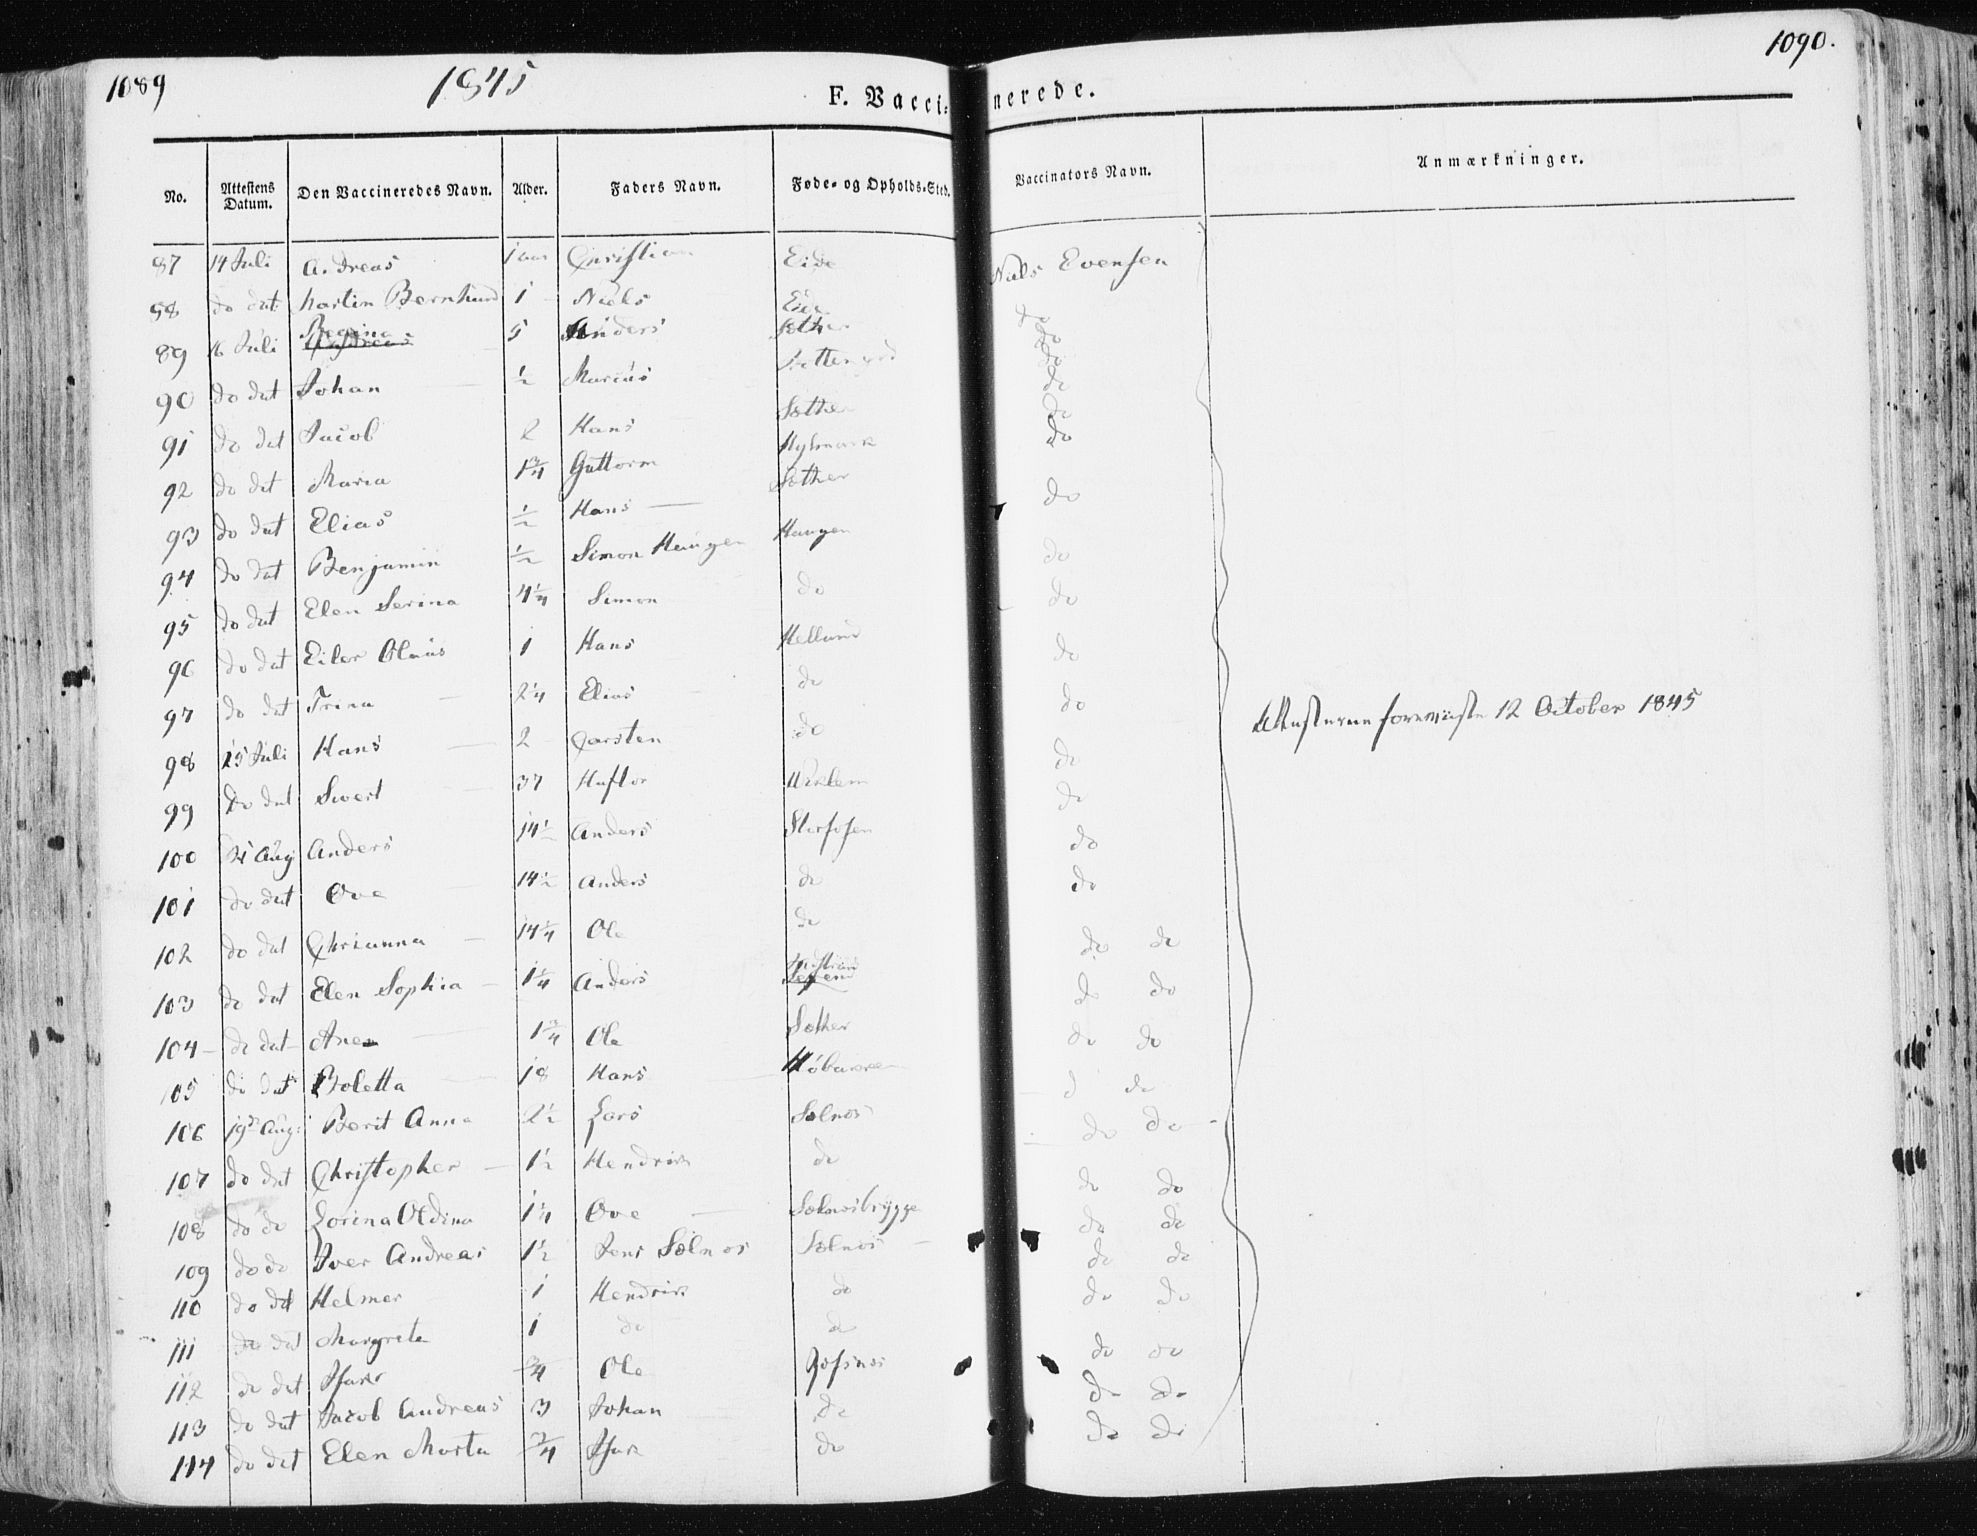 1089
1845
F. Vacci-
nerede.
1090.
No. Attestens Datum. Den Vaccineredes Navn. Alder. Faders Navn. Føde- og Opholds-Sted. Vaccinators Navn. Anmærkninger.
87 14 Juli Andreas 1 aar Christian Eide Niels Evensen
88 do dat: Martin Bernhard 1 Niels Eide do
89 16 Juli Regina 5 Anders Sæther do
90 do dat Johan 1/2 Marius do
91 do dat Jacob 2 Hans Sæther do
92 do dat Maria 1 3/4 Guttorm do
93 do dat Elias 1/2 Hans Sæther do
94 do dat Benjamin 1/2 Simon Haugen Haugen do
95 do dat Elen Serina 4 1/4 Simon do do
96 do dat Eiler Olaus 1 Hans Helland do
97 do dat Trina 2 1/4 Elias do do
98 25 Juli Hans 2 Carsten do do
99 do dat Sivert 37 Haftor do
100 Aug Anders 14 1/2 Anders do
101 do dat Ove 14 1/2 Anders do do
102 do dat Chrianna 14 1/4 Ole do do do
103 do dat Elen Sophia 1 1/4 Anders do do
104 do dat Ane 1 3/4 Ole Sæther do do
105 do dat Boletta 18 Hans do do
106 19de Aug: Berit Anna 2 1/2 Lars Solnos do do
107 do dat Christopher 1 1/2 Hendrik do do do
108 do do Lorina Oldina 1 1/4 Ove Solnosbrygge do do
109 do do Iver Andreas 1 1/2 Jens Solnos Solnos do do
110 do dat Helmer 1 Hendrik do do do
111 do dat Margreta 1 do do do do
112 do dat Isak 3/4 Ole do do
113 do dat Jacob Andreas 3 Johan do do do
114 do dat Elen Marta 3/4 Isak do do do
12 October 1845